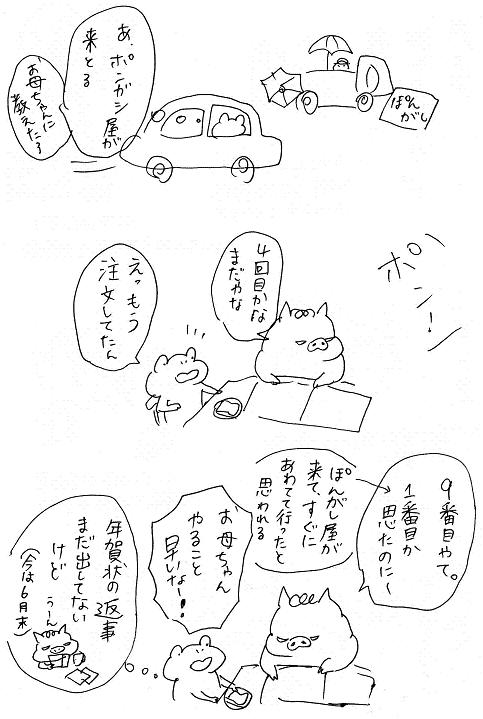 あ、ポンガシ屋が
来とる
お母ちゃんに
教えたろ
ぽん
がし
ポン!
4回目かな
まだやな
えっもう
注文してたん
9番目やて。
1番目か
思たのにー
ぽんがし屋が
来て、すぐに
あわてて行ったと
思われる
お母ちゃん
やること
早いなー!
年賀状の返事
まだ出してない
けど うーん
(今は6月末)